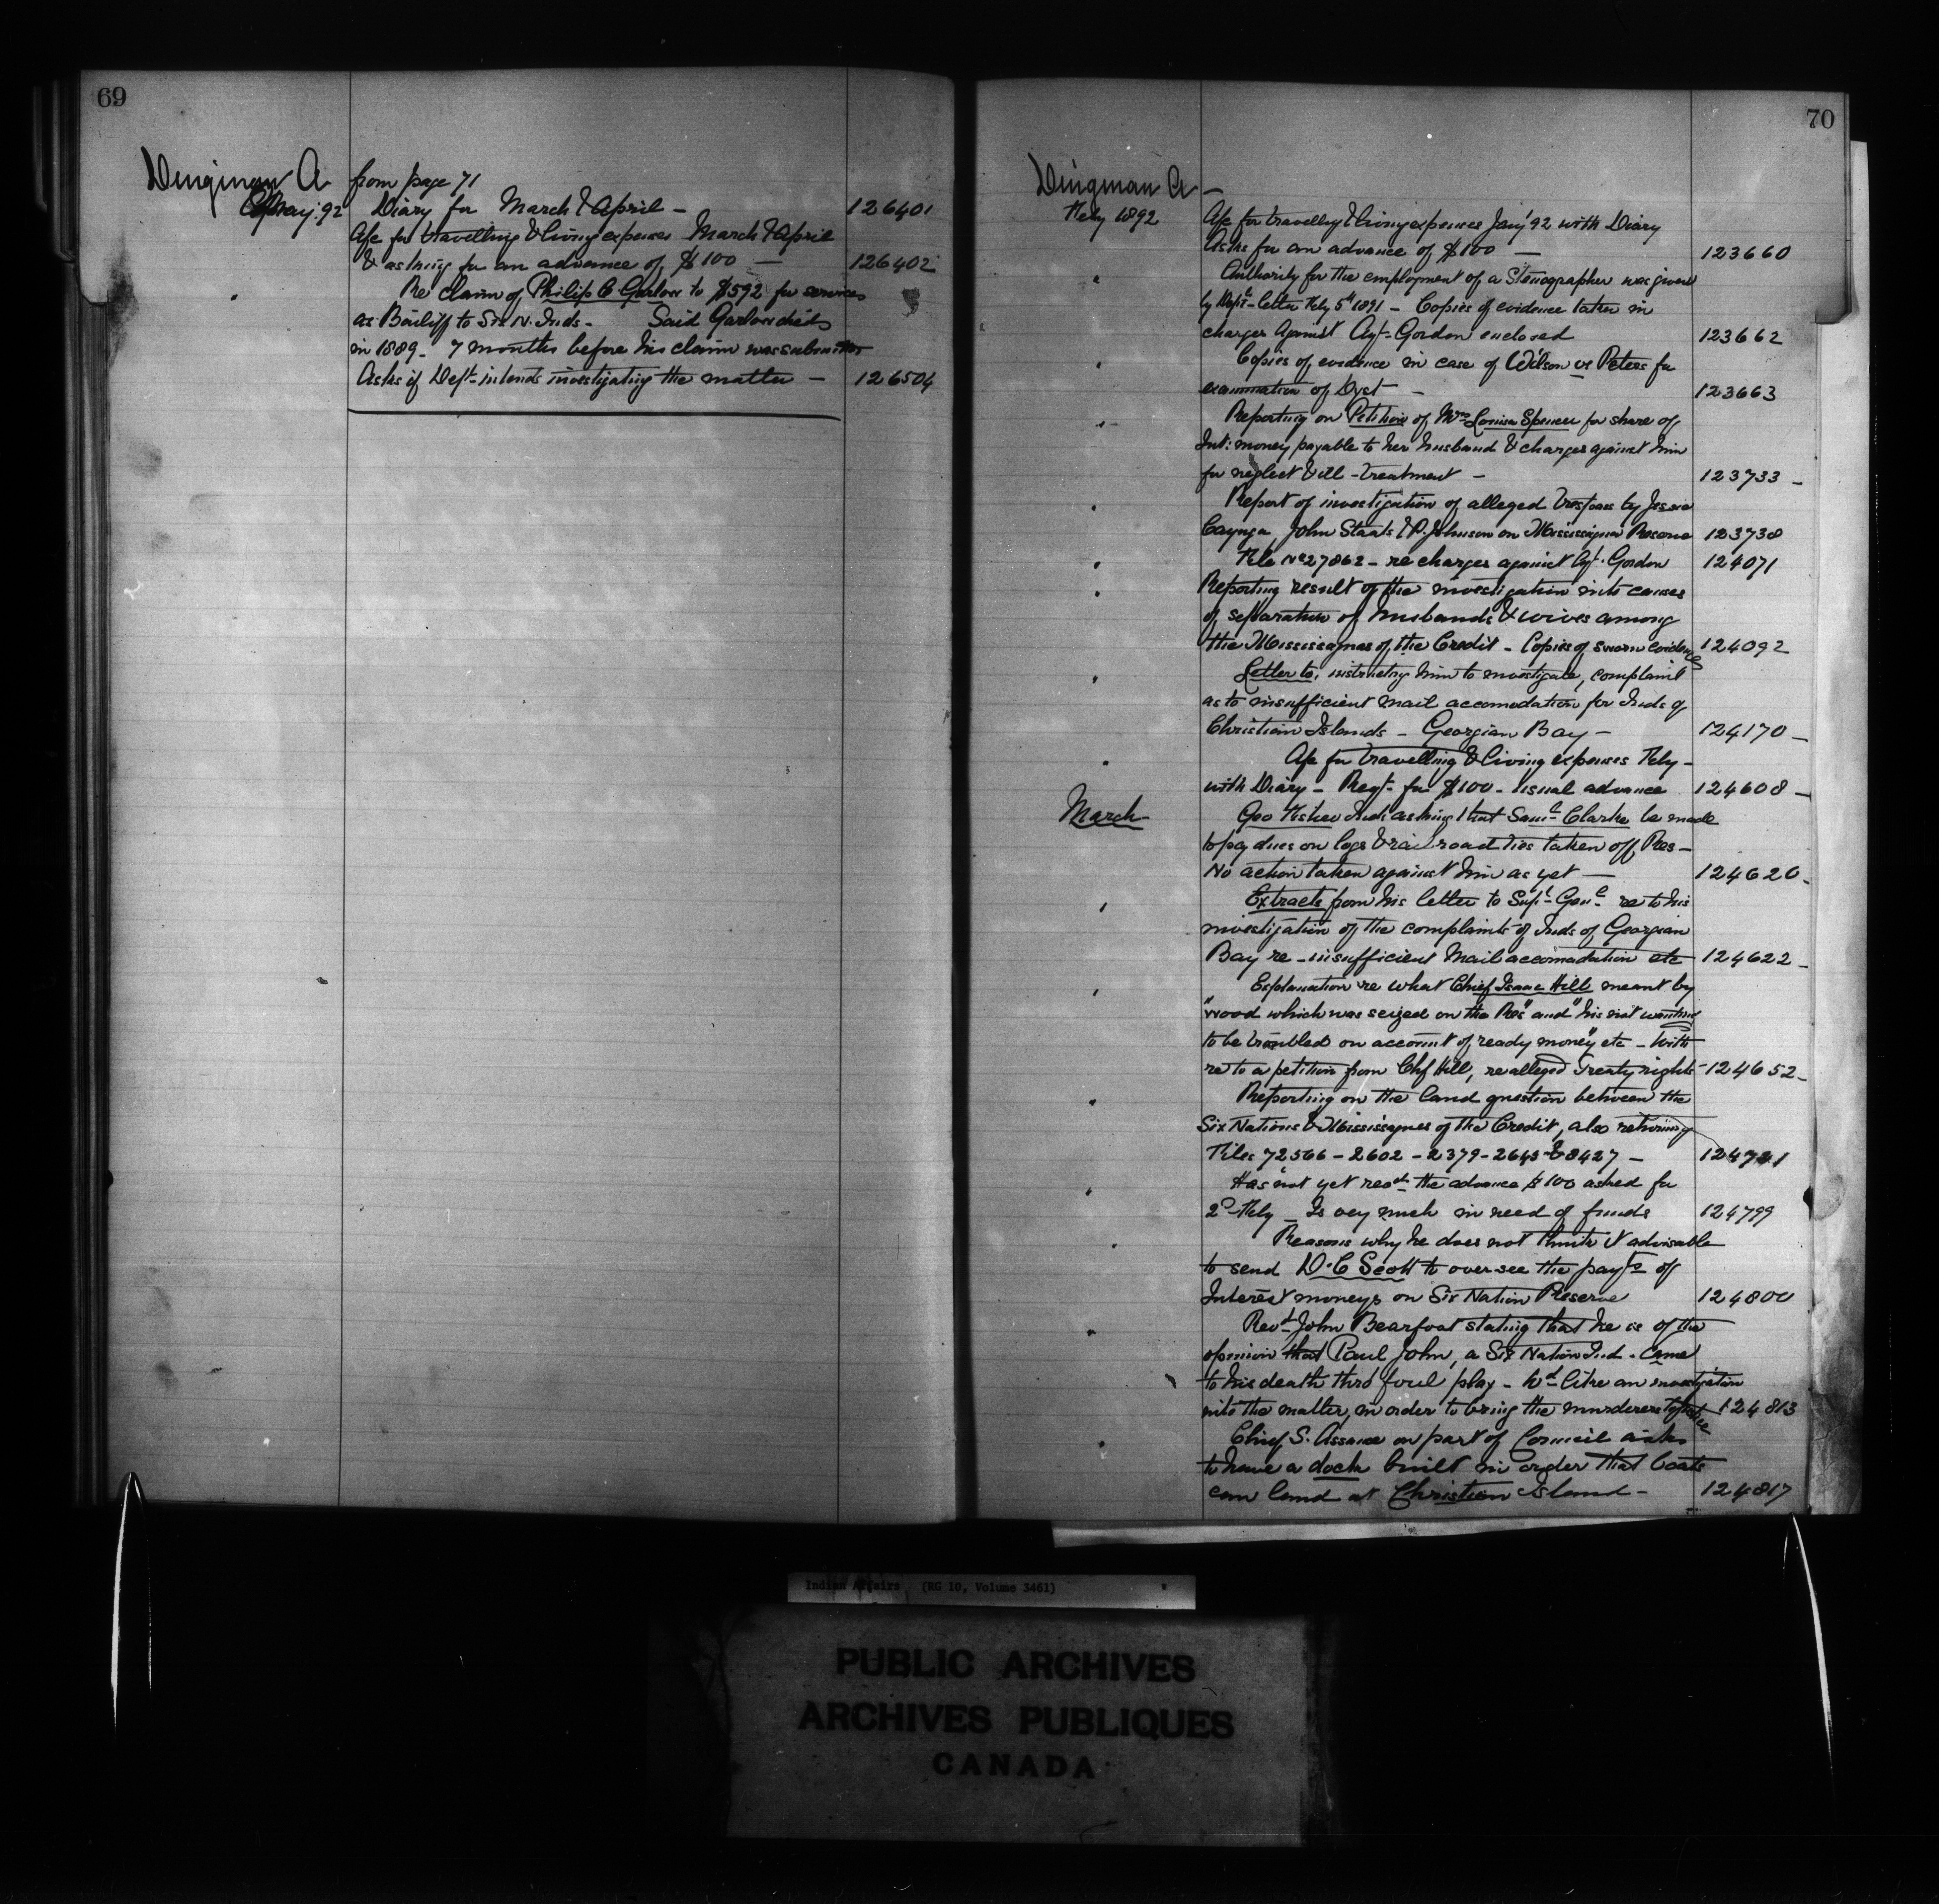 69
Dingman A from page 71
May. 92 Diary for March & April — 126401
A/c for travelling & living expenses March & April
& asking for an advance of $100 — 126402
Re claim of Philip C Garlow to $592 for services
as Bailiff to Six N. Inds - Said Garlow died
in 1889 - 7 months before his claim was submitted
Asks if Dept intends investigating the matter — 126504
70
Dingman A —
Feby 1892 A/c for travellg & living expenses Jany '92 with Diary
Asks for an advance of $100 — 123660
" Authority for the employment of a Stenographer was given
by Dept. letter Feby 5th 1891 — Copies of evidence taken in
charges against Agt. Gordon enclosed 123662
" Copies of evidence in case of Wilson vs Peters for
examination of Dept — 123663
" Reporting on Petition of Mrs Louisa Spencer for share of
Int: money payable to her husband & charges against him
for neglect & ill-treatment — 123733 -
" Report of investigation of alleged trespass by Jessie
Cayuga, John Staats & P. Johnson on Mississagua Reserve 123738
" File No 27862 - re charges against Agt. Gordon 124071
" Reporting result of the investigation into causes
of separation of husbands & wives among
the Mississaguas of the Credit - Copies of sworn evidence 124092
" Letter to, instructing him to investigate, complaint
as to insufficient mail accomodation for Inds of
Christian Islands - Georgian Bay — 124170 -
" A/c for travelling & living expenses Feby -
with Diary - Reqt for $100 - usual advance 124608 -
March Geo Fisher Inds asking that Saml Clarke be made
to pay dues on logs & railroad ties taken off Res -
No action taken against him as yet — 124620 -
" Extracts from his letter to Supt. Genl. re to his
investigation of the complaints of Inds of Georgian
Bay re - insufficient Mail accomodation etc 124622 -
" Explanation re what Chief Isaac Hill meant by
"wood which was seized on the Res" and "his not wanting
to be troubled on account of ready money" etc - With
re to a petition from Chf Hill, re alleged Treaty rights - 124652 -
" Reporting on the land question between the
Six Nations & Mississaguas of the Credit, also returning
Files 72566 - 2602 - 2379 - 2645 & 8427 - 124721
" Has not yet recd the advance $100 asked for
2d Feby - Is very much in need of funds 124799
" Reasons why he does not think it advisable
to send D. C Scott to oversee the payts of
Interest moneys on Six Nation Reserve 124800
" Revd John Bearfoot stating that he is of the
opinion that Paul John, a Six Nation Ind. came
to his death thro' foul play - Wd like an investigation
into the matter, in order to bring the murderers to justice 124813
" Chief S. Assance on part of Council asks
to have a dock built in order that boats
can land at Christian Island - 124817
Indian Affairs (RG 10, Volume 3461)
PUBLIC ARCHIVES
ARCHIVES PUBLIQUES
CANADA